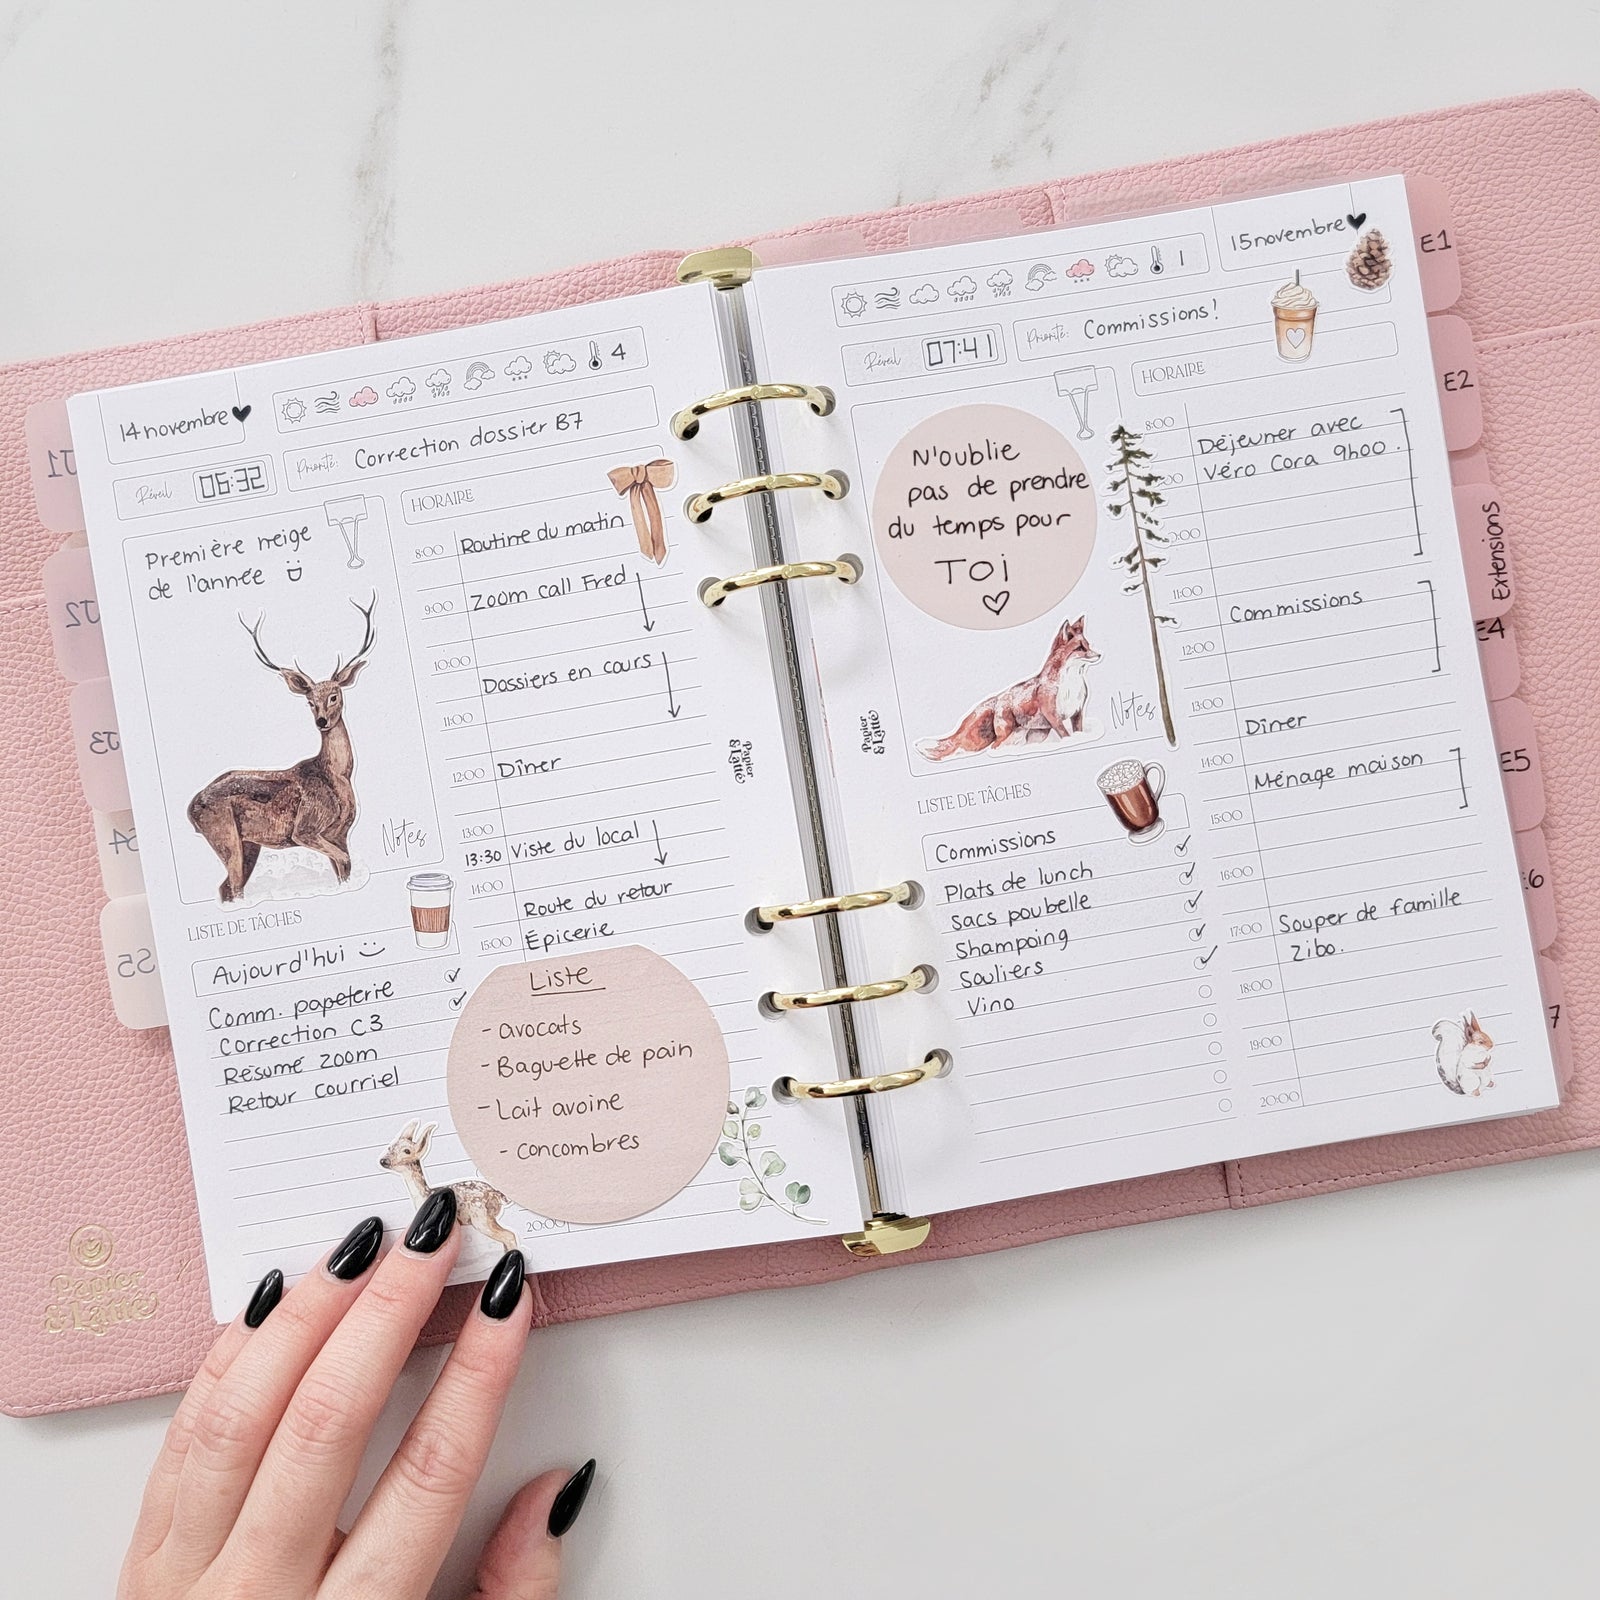 14 novembre
4
Réveil
06:32
Priorité:
Correction dossier B7
Première neige
de l'année
Notes
HORAIRE
8:00 Routine du matin
9:00 Zoom call Fred
10:00
Dossiers en cours
11:00
12:00 Dîner
13:00
13:30 Viste du local
14:00
Route du retour
15:00 Épicerie
20:00
LISTE DE TÂCHES
Aujourd'hui
Comm. papeterie
Correction C3
Résumé zoom
Retour courriel
Liste
- avocats
- Baguette de pain
- Lait avoine
- concombres
Papier
& Latté
Papier
& Latté
J1
J2
J3
S4
S5
15 novembre
1
Réveil
07:41
Priorité:
Commissions!
N'oublie
pas de prendre
du temps pour
TOi
Notes
Papier
& Latté
HORAIRE
8:00
Déjeuner avec
Véro Cora 9h00.
11:00
Commissions
12:00
13:00
Dîner
14:00
Ménage maison
15:00
16:00
17:00 Souper de famille
Zibo.
18:00
19:00
20:00
LISTE DE TÂCHES
Commissions
Plats de lunch
Sacs poubelle
Shampoing
Souliers
Vino
E1
E2
Extensions
E4
E5
E6
7